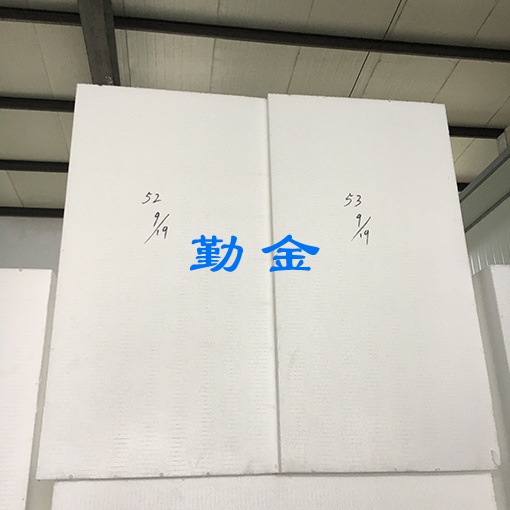 52
9/19
53
9/19
勤金